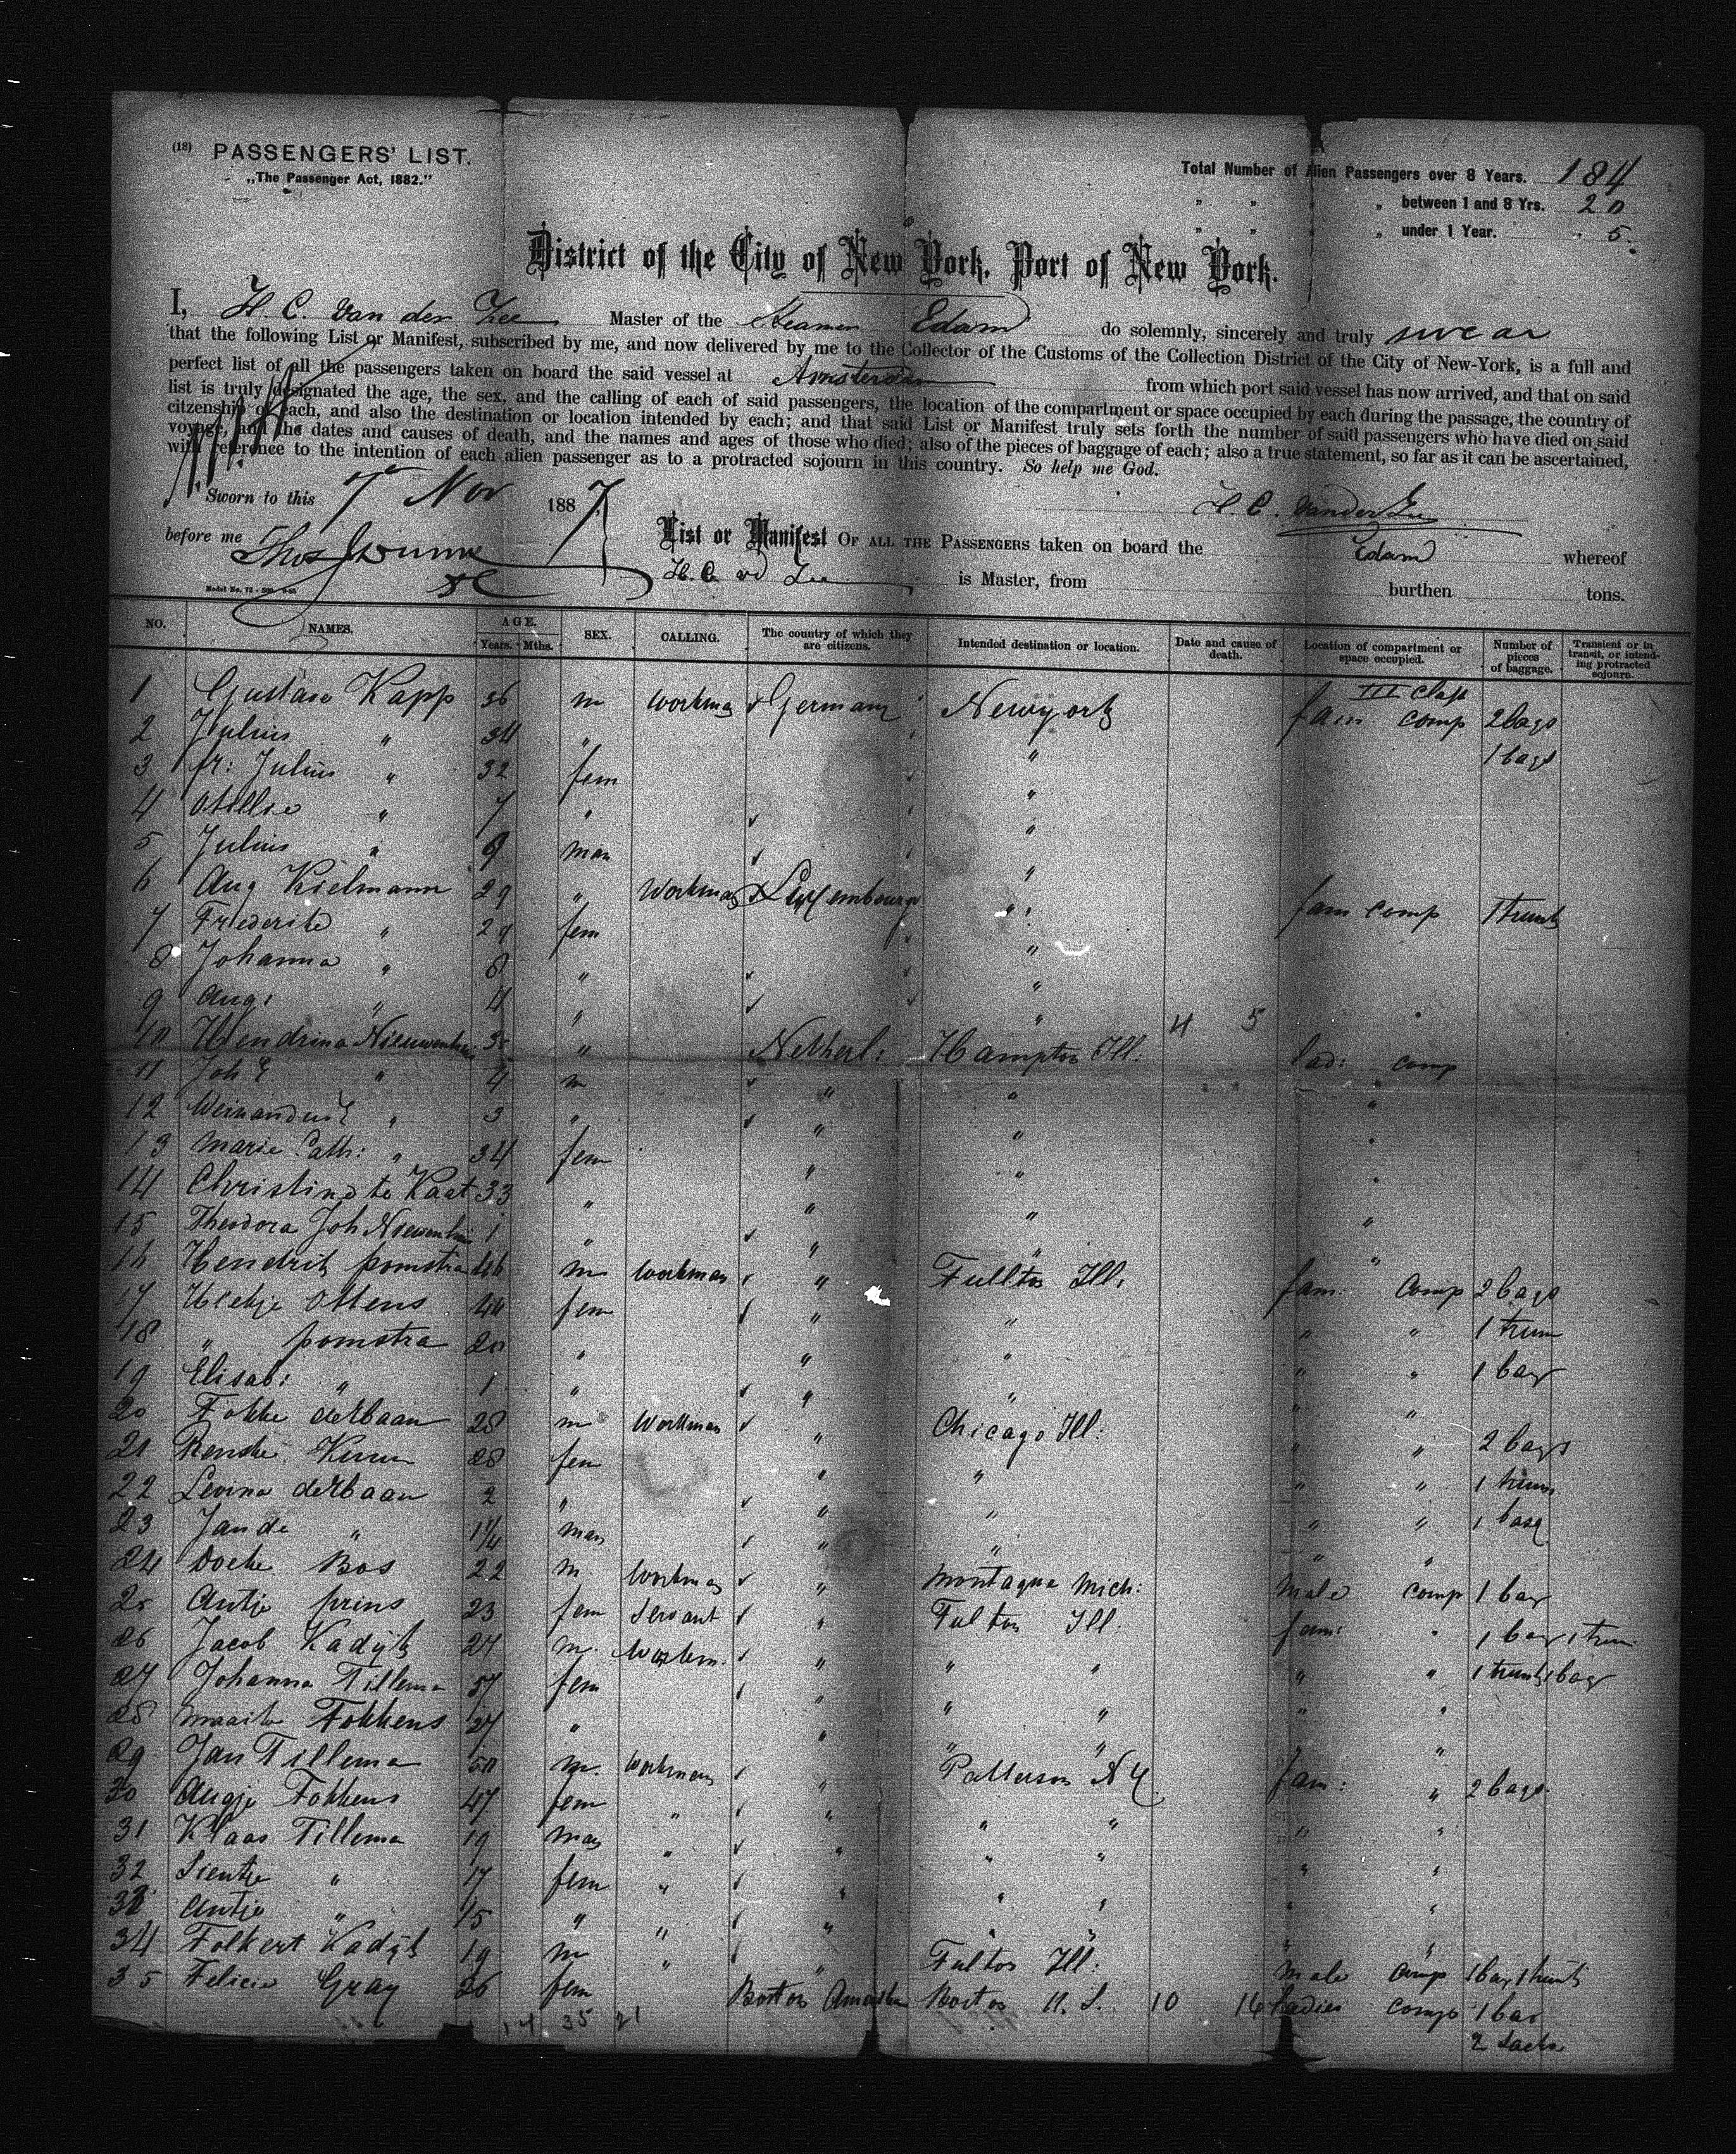 (18) PASSENGERS' LIST.
„The Passenger Act, 1882."
Total Number of Alien Passengers over 8 Years. 184
" " " „ between 1 and 8 Yrs. 20
" " " „ under 1 Year. 5.
District of the City of New York, Port of New York.
I, H. C. Van der Zee Master of the Steamer Edam do solemnly, sincerely and truly swear
that the following List or Manifest, subscribed by me, and now delivered by me to the Collector of the Customs of the Collection District of the City of New-York, is a full and
perfect list of all the passengers taken on board the said vessel at Amsterdam from which port said vessel has now arrived, and that on said
list is truly designated the age, the sex, and the calling of each of said passengers, the location of the compartment or space occupied by each during the passage, the country of
citzenship of each, and also the destination or location intended by each; and that said List or Manifest truly sets forth the number of said passengers who have died on said
voyage, and the dates and causes of death, and the names and ages of those who died; also of the pieces of baggage of each; also a true statement, so far as it can be ascertained,
with reference to the intention of each alien passenger as to a protracted sojourn in this country. So help me God.
Sworn to this 7th Nov 1887 H. C. Van der Zee
before me Thos
List or Manifest OF ALL THE PASSENGERS taken on board the Edam whereof
H. C. vd Zee is Master, from burthen tons.
NO. NAMES. AGE. Years. Mths. SEX. CALLING. The country of which they are citizens. Intended destination or location. Date and cause of death. Location of compartment or space occupied. Number of pieces of baggage. Transient or in transit, or intending protracted sojourn.
1 Gustave Kapp 36 m workman Germany Newyork III Class fam comp 2 bags
2 Julius " 34 " " 1 bags
3 fr: Julius " 32 fem "
4 Otillie " 7 " "
5 Julius " 9 man "
6 Aug Kielmann 29 " Workman Luxembourg " fam comp 1 trunk
7 Frederike " 29 fem "
8 Johanna " 8 " "
9 Aug: " 4 " " 4 5
10 Hendrina Nieuwenhuis " Netherl: Hampton Ill. lad: comp
11 Joh " 4 m " " "
12 " 3 " " " "
13 Marie Cath: " 34 fem " " "
14 Christina te Kaat 33 " " " "
15 Theodora Joh 1 " " " "
16 Hendrik pomstra 46 m workman " Fullton Ill. fam: comp 2 bags
17 Ottens 44 fem " " " " 1 trun
18 " pomstra 20 " " " " " 1 bag
19 Elisab: " 1 " " " " "
20 Fokke de Haan 28 m Workman " Chicago Ill: " " 2 bags
21 Renske 28 fem " " " " 1 trun
22 Levina de Haan 2 " " " " " 1 bag
23 Jan de " 1¼ man " " " "
24 Doeke Bos 22 m Workman " Montague Mich: Male comp 1 bag
25 Antje prins 23 fem Servant " Fulton Ill. fam: " 1 bag 1 trun
26 Jacob Kadijk 27 m. Workm. " " " " " 1 trunk 1 bag
27 Johanna Tillema 57 fem " " " " "
28 Maaike Fokkens 27 " " " " "
29 Jan Tillema 50 m. workman " Patterson N Y fam: " 2 bags.
30 Fokkens 47 fem " " " " " "
31 Klaas Tillema 19 man " " " " " "
32 Sientje " 17 fem " " " " " "
33 Antje " 15 " " " " " " "
34 Folkert Kadijk 19 m " " Fulton Ill: Male comp 1 bag 1 trunk
35 Felicia Gray 26 fem Boston Boston U. S. 10 16 ladies comp 1 bag
2 sacks
14 35 21